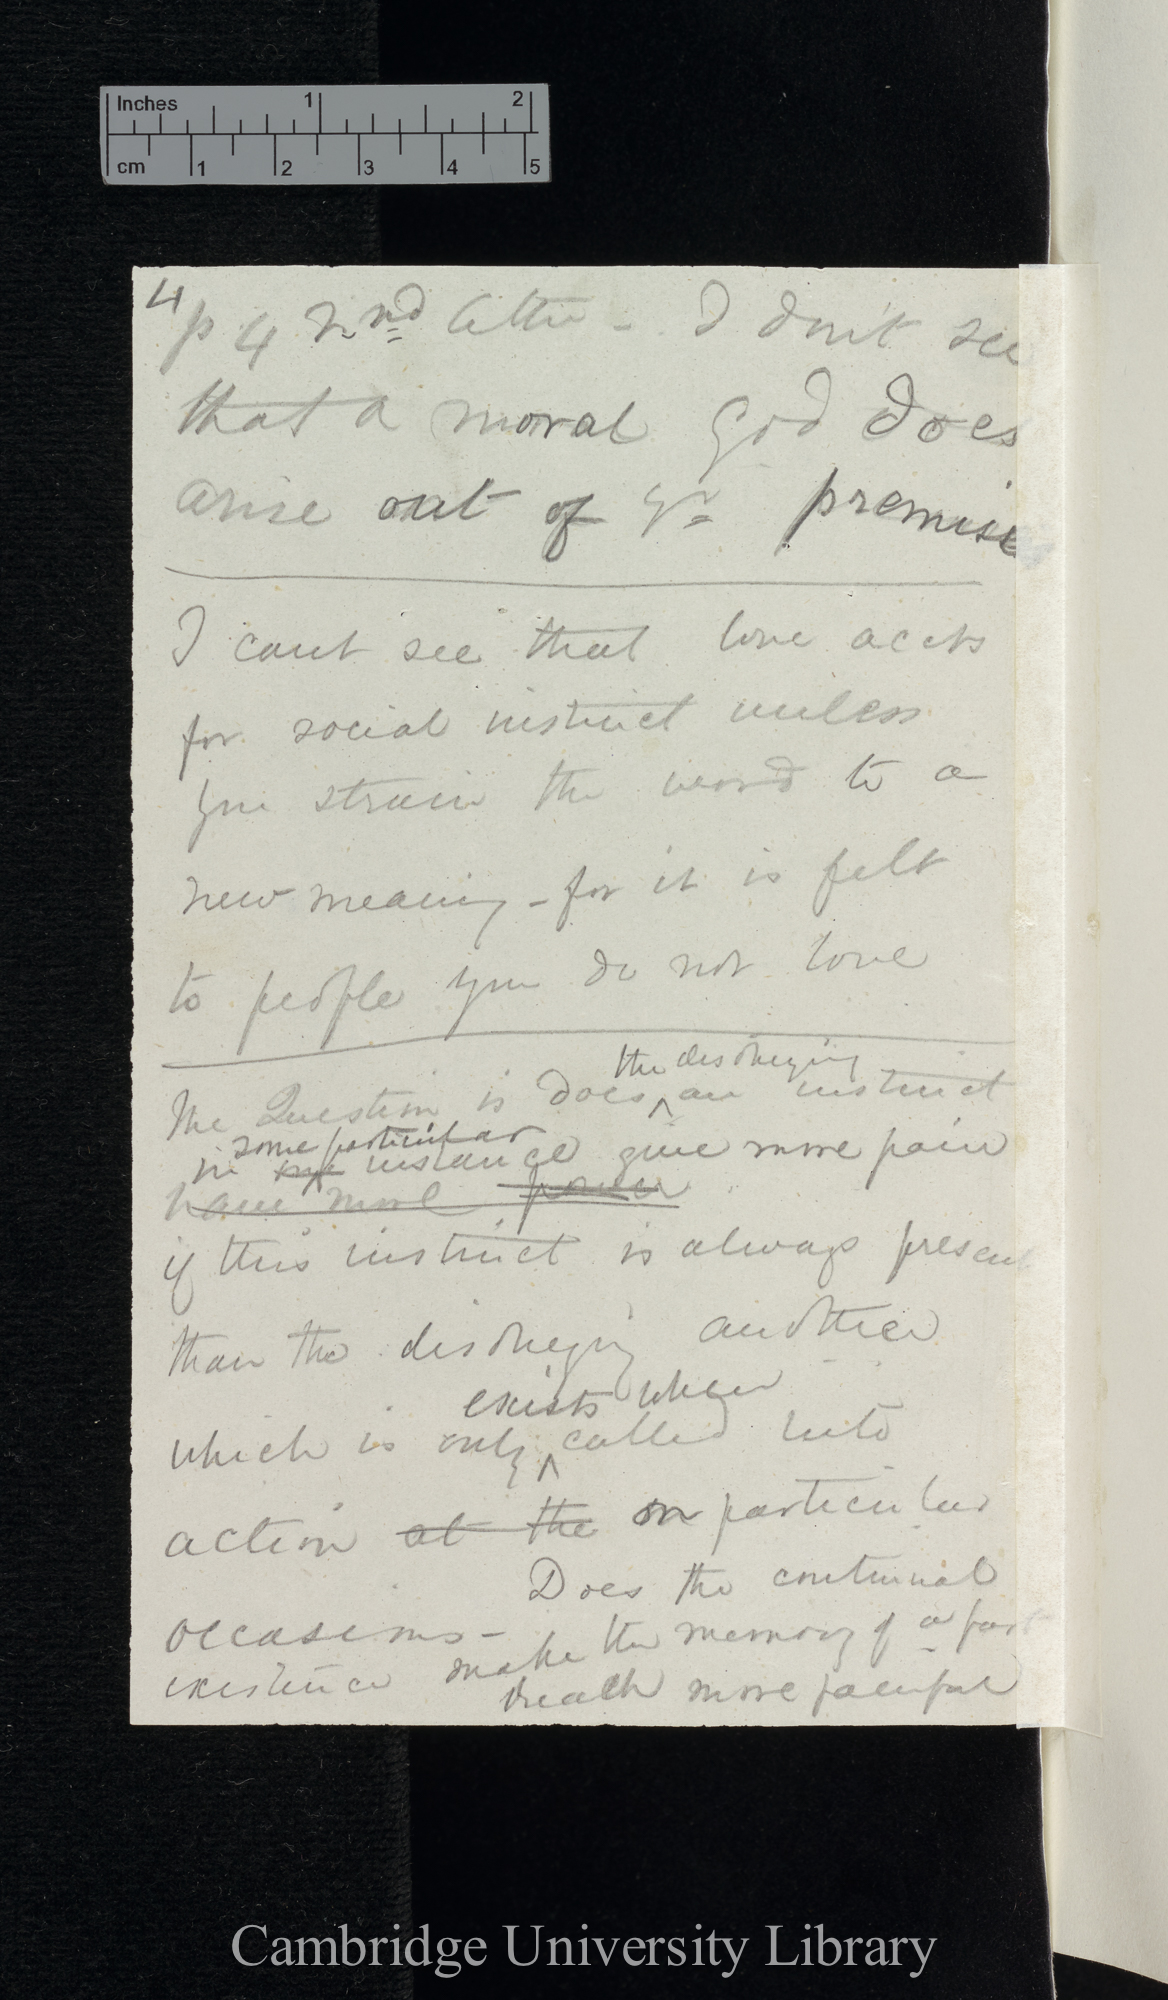 Inches 1 2
cm 1 2 3 4 5
4
p 4 2nd letter - I don't see
that a moral God does
arise out of yr premise
I cant see that love accts
for social instinct unless
you strain the word to a
new meaning - for it is felt
to people you do not love
the disobeying
The Question is does an instinct
some particular
in instance give more pain
have more power
if this instinct is always present
than the disobeying another
exists when
which is only called into
action at the on particular
occasions - Does the continual
existence make the memory of a past
breach more painful
Cambridge University Library